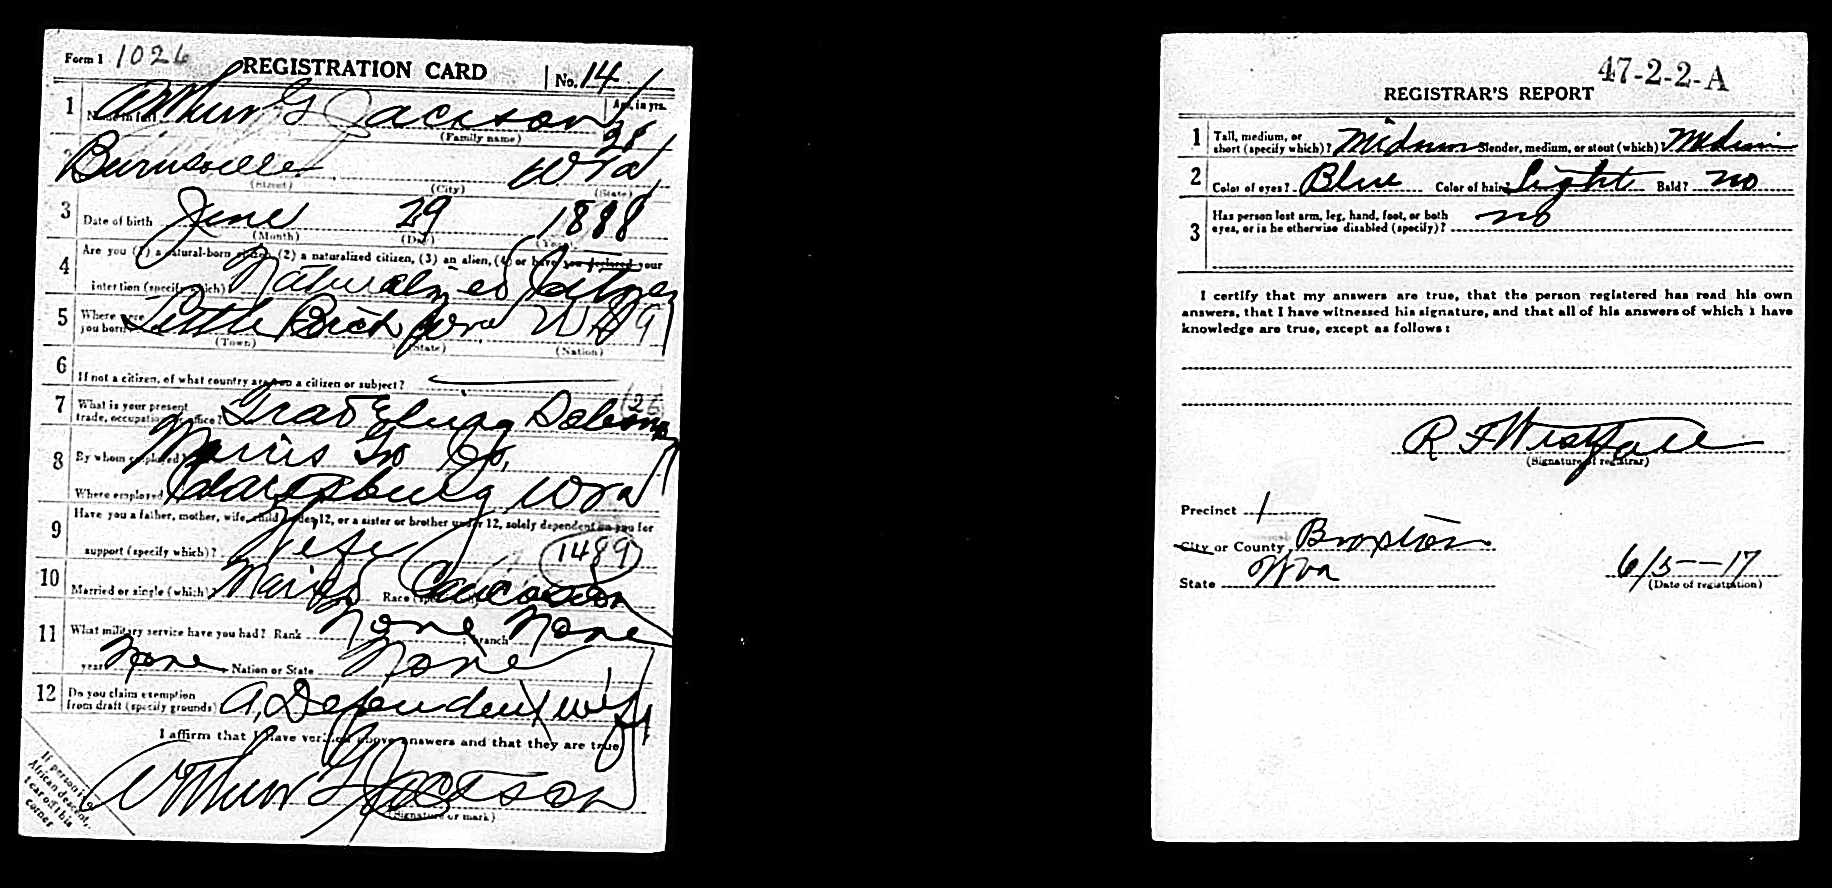 Form 1 1026 REGISTRATION CARD No. 14
1 Name in full Arthur G Jackson Age, in yrs.
(Family name) 28
Burnsville Wva
(Street) (City) (State)
3 Date of birth June 29 1888
(Month) (Day) (Year)
4 Are you (1) a natural-born citizen, (2) a naturalized citizen, (3) an alien, (4) or have you declared your
intention (specify which)? Naturalized Citizen
5 Where were you born? Little Birch Wva
(Town) (State) (Nation)
6 If not a citizen, of what country are you a citizen or subject?
7 What is your present trade, occupation, or office? Traveling Salesman 26
8 By whom employed? Morris Gro Co,
Where employed? Clarksburg, Wva
9 Have you a father, mother, wife, child under 12, or a sister or brother under 12, solely dependent on you for
support (specify which)? Wife 1489
10 Married or single (which)? Married Race (specify which)? Caucasian
11 What military service have you had? Rank None ; branch None
years None Nation or State None
12 Do you claim exemption from draft (specify grounds)? A, Dependent wife
I affirm that I have verified above answers and that they are true.
Arthur G Jackson
(Signature or mark)
If person is of
African descent,
tear off this
corner
47-2-2-A
REGISTRAR'S REPORT
1 Tall, medium, or short (specify which)? Midium Slender, medium, or stout (which)? Medium
2 Color of eyes? Blue Color of hair? Light Bald? no
3 Has person lost arm, leg, hand, foot, or both eyes, or is he otherwise disabled (specify)? no
I certify that my answers are true, that the person registered has read his own
answers, that I have witnessed his signature, and that all of his answers of which I have
knowledge are true, except as follows:
R F Westfall
(Signature of registrar)
Precinct 1
City or County Braxton
State Wva 6/5--17
(Date of registration)